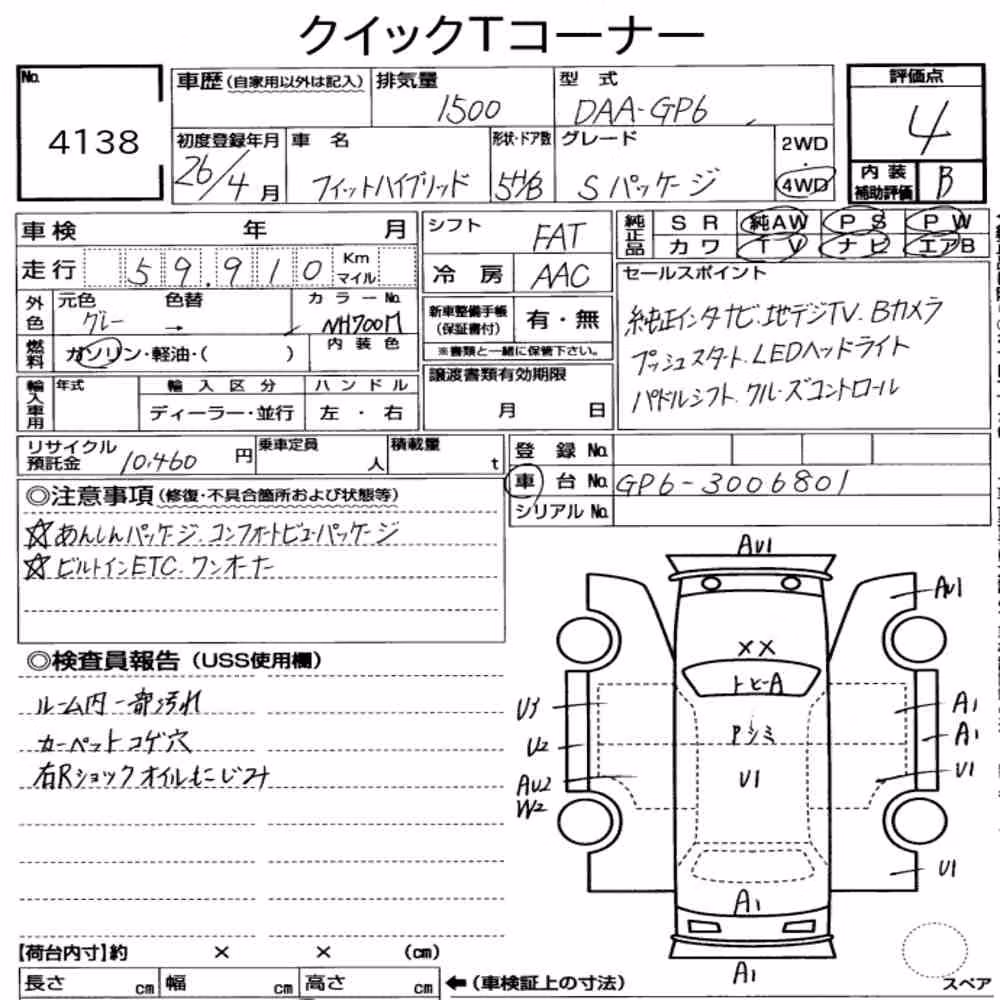 クイックTコーナー
No.
4138
車歴(自家用以外は記入)
排気量
1500
型式
DAA-GP6
評価点
4
初度登録年月
26/4月
車名
フィットハイブリッド
形状・ドア数
5H/B
グレード
Sパッケージ
2WD
・
4WD
内装
補助評価
B
車検 年 月
走行 59.910 Km マイル
外色
元色
グレー
色替
→
カラーNo.
NH700M
燃料
ガソリン・軽油・( )
内装色
輸入車用
年式
輸入区分
ディーラー・並行
ハンドル
左・右
シフト
FAT
冷房
AAC
新車整備手帳
(保証書付)
有・無
※書類と一緒に保管下さい。
譲渡書類有効期限
月 日
純正品
SR 純AW PS PW
カワ TV ナビ エアB
セールスポイント
純正インターナビ.地デジTV.Bカメラ
プッシュスタート.LEDヘッドライト
パドルシフト.クルーズコントロール
リサイクル
預託金
10,460円
乗車定員
人
積載量
t
登録No.
車台No.
GP6-3006801
シリアルNo.
◎注意事項(修復・不具合箇所および状態等)
☆あんしんパッケージ.コンフォートビューパッケージ
☆ビルトインETC.ワンオーナー
◎検査員報告(USS使用欄)
ルーム内一部汚れ
カーペットコゲ穴
右Rショックオイルもにじみ
AU1
AU1
××
トビーA
U3
A1
U2
A1
Pシミ
U1
U1
AU2
W2
U1
A1
A1
スペア
【荷台内寸】約 × × (cm)
長さ cm 幅 cm 高さ cm
←(車検証上の寸法)